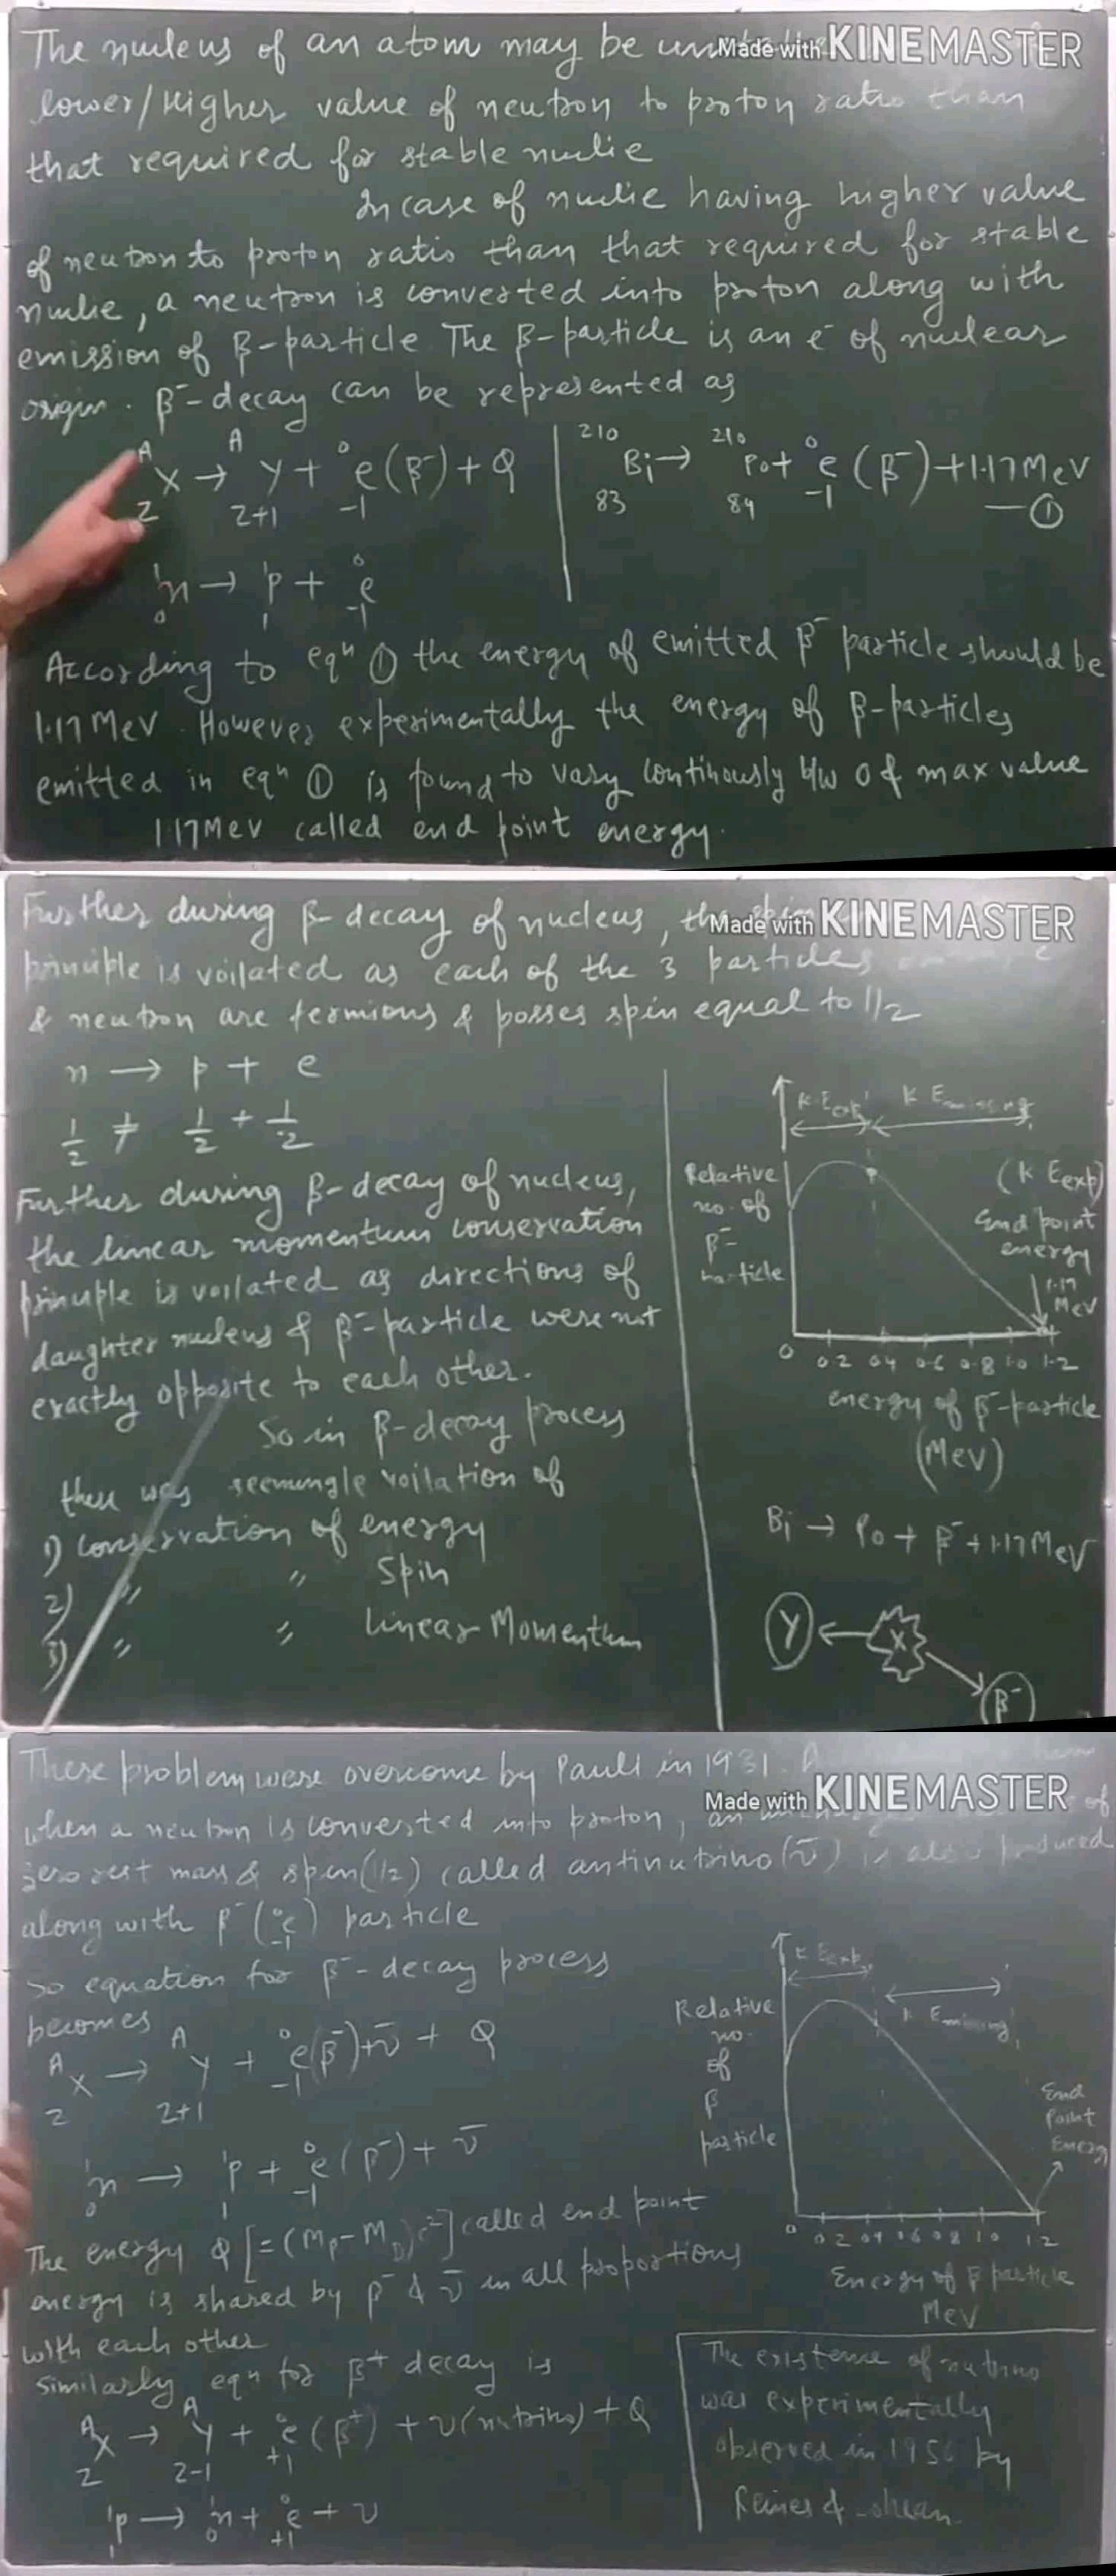 The nucleus of an atom may be
Made with KINEMASTER
lower/Higher value of neutron to proton ratio than
that required for stable nuclie
In case of nuclie having higher value
of neutron to proton ratio than that required for stable
nuclie, a neutron is converted into proton along with
emission of β-particle. The β-particle is an e⁻ of nuclear
origin. β⁻-decay can be represented as
A A 0
X → Y + e(β⁻) + Q
Z Z+1 -1
210 210 0
Bi → Po + e (β⁻) + 1.17 MeV
83 84 -1 — ①
1 1 0
n → p + e
0 1 -1
According to eqⁿ ① the energy of emitted β⁻ particle should be
1.17 MeV. However experimentally the energy of β-particles
emitted in eqⁿ ① is found to vary continously b/w 0 & max value
1.17 MeV called end point energy.
Further during β-decay of nucleus, the spin
Made with KINEMASTER
prinuiple is voilated as each of the 3 particles
& neutron are fermions & posses spin equal to 1/2
n → p + e
1/2 ≠ 1/2 + 1/2
Further during β-decay of nucleus,
the linear momentum conservation
prinuple is voilated as directions of
daughter nucleus & β⁻-particle were not
exactly opposite to each other.
So in β-decay process
there was seemingle voilation of
1) conservation of energy
2) " " Spin
3) " " Linear Momentum
K Eexp K Emissing
Relative
no. of
β⁻
particle
P
(K Eexp)
End point
energy
1.17
MeV
0 0.2 0.4 0.6 0.8 1.0 1.2
energy of β⁻-particle
(MeV)
Bi → Po + β⁻ + 1.17 MeV
Y ← X
β⁻
These problem were overcome by Pauli in 1931.
Made with KINEMASTER
when a neutron is converted into proton, an of
zero rest mass & spin(1/2) called antinutrino(ν̄) is also produced
along with β⁻(0 -1 e) particle
so equation for β⁻-decay process
becomes
A A 0
X → Y + e(β⁻) + ν̄ + Q
Z Z+1 -1
1 1 0
n → p + e(β⁻) + ν̄
0 1 -1
The energy Q [=(Mp-MD)c²] called end point
energy is shared by β⁻ & ν̄ in all proportions
with each other
Similarly eqⁿ for β⁺ decay is
A A 0
X → Y + e(β⁺) + ν(nutrino) + Q
Z Z-1 +1
1 1 0
p → n + e + ν
1 0 +1
K Eexp K Emissing
Relative
no.
of
β
particle
End
Point
Energy
0 0.2 0.4 0.6 0.8 1.0 1.2
Energy of β particle
MeV
The existence of nutrino
was experimentally
observed in 1956 by
Reines &